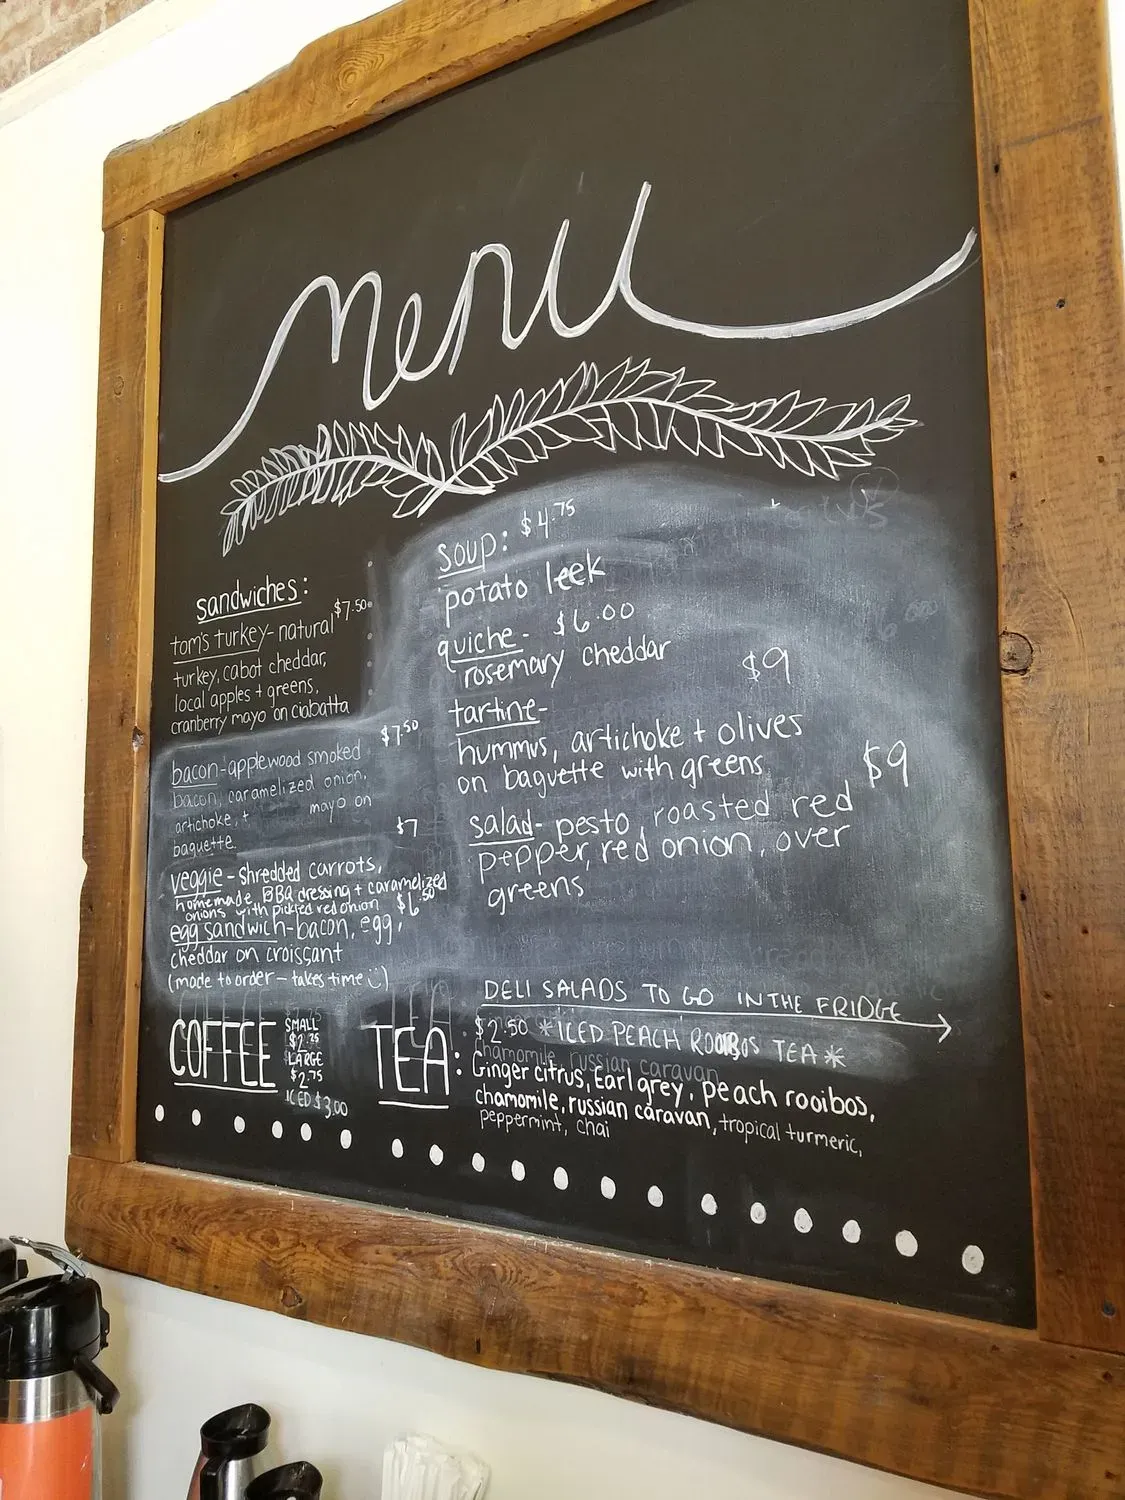 menu
sandwiches:
$7.50
tom's turkey- natural
turkey, cabot cheddar,
local apples + greens,
cranberry mayo on ciabatta
$7.50
bacon-applewood smoked
bacon, caramelized onion,
artichoke, + mayo on
baguette.
$7
veggie - shredded carrots,
homemade BBQ dressing + caramelized
onions with pickled red onion
$6.50
egg sandwich-bacon, egg,
cheddar on croissant
(made to order - takes time)
soup: $4.75
potato leek
quiche- $6.00
rosemary cheddar
$9
tartine-
hummus, artichoke + olives
on baguette with greens
$9
salad- pesto, roasted red
pepper, red onion, over
greens
DELI SALADS TO GO IN THE FRIDGE
COFFEE
SMALL
$2.25
LARGE
$2.75
ICED $3.00
TEA:
$2.50 *ICED PEACH ROOIBOS TEA*
Ginger citrus, Earl grey, peach rooibos,
chamomile, russian caravan, tropical turmeric,
peppermint, chai